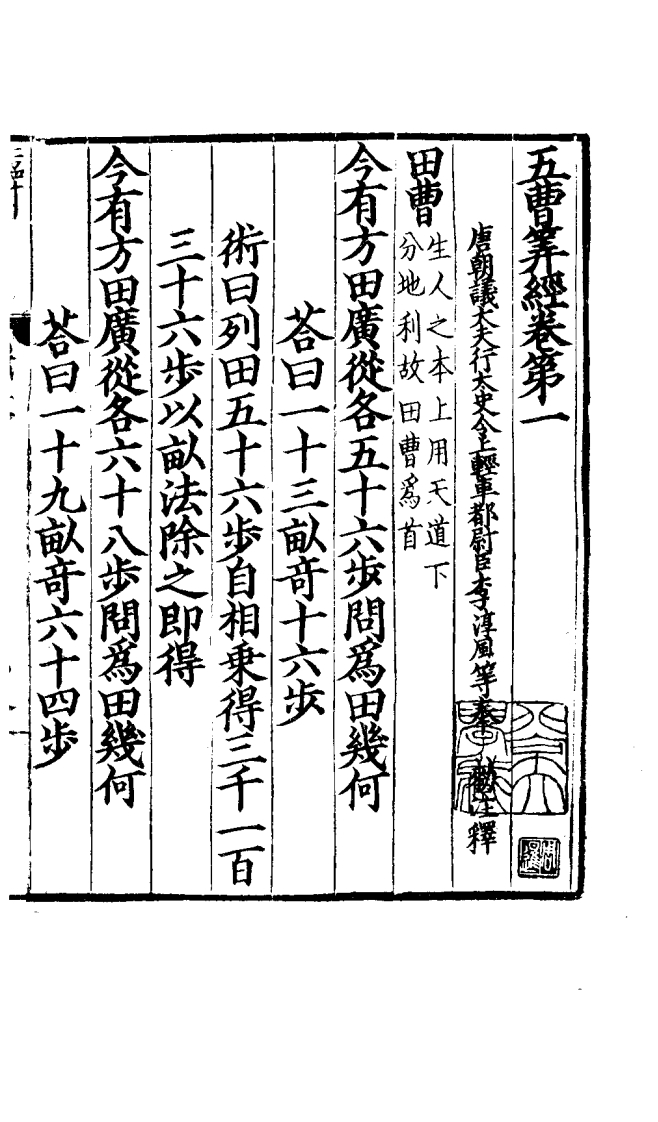 五曹筭經卷第一
唐朝議大夫行太史令上輕車都尉臣李淳風等奉 勑注釋
田曹 生人之本上用天道下
分地利故田曹爲首
今有方田廣從各五十六步問爲田幾何
荅曰一十三畝奇十六步
術曰列田五十六步自相乗得三千一百
三十六步以畝法除之即得
今有方田廣從各六十八步問爲田幾何
荅曰一十九畝奇六十四步